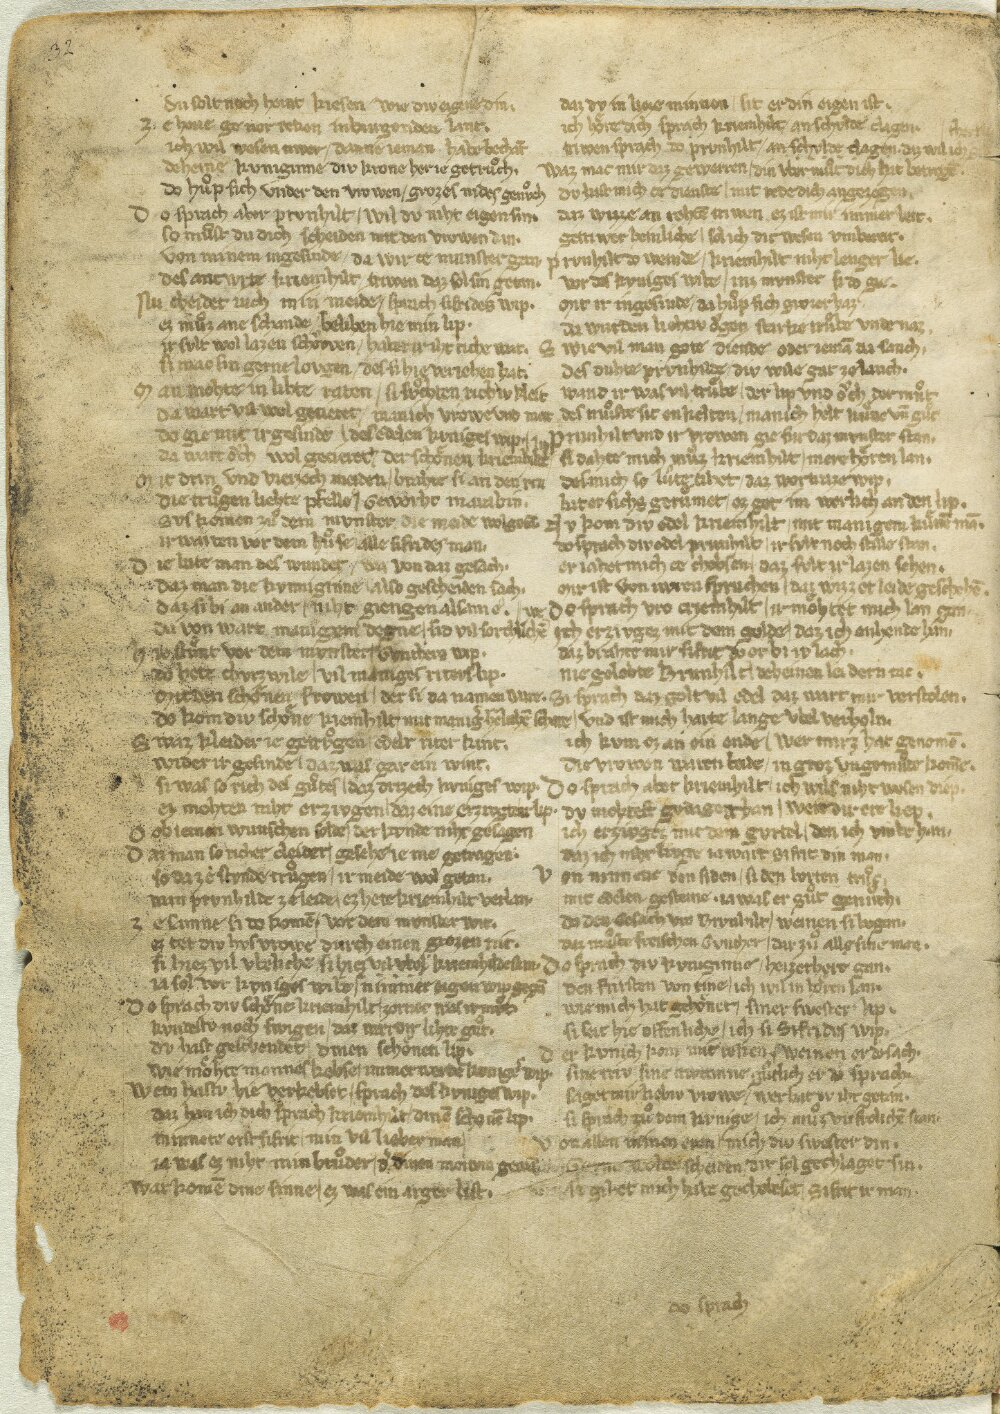 32
du solt noch hevte kiesen wie div eigene din.
Ze houe ge vor recken in burgonden lant.
ich wil wesen tiwer / danne ieman habe bechant
deheine kvniginne div krone her ie getrůch.
do hůp sich vnder den vrowen / grozes nides genůch
Do sprach aber prvnhilt / wil dv niht eigen sin.
so můst du dich scheiden mit den vrowen din.
von minem ingesinde / da wir ze mvnster gan
des antwrte kriemhilt / triwen daz sol sin getan.
Nv cleidet iuch mini meide / sprach sifrides wip.
ez můz ane schande / beliben hie min lip.
ir svlt wol lazen schowen / habet ir iht riche wat.
si mac sin gerne lovgen / des si hie veriehen hat.
Man mohte in lihte raten / si sůchten richiv kleit
da wart vil wol gecieret / manich vrowe vnd meit
do gie mit ir gesinde / des edelen kvniges wip.
da wart och wol gecieret / der schonen kriemhilde lip
Mit drin vnd vierzech meiden / brahte si an den rin
die trůgen liehte pfelle / geworht in arabin.
Svs komen zů dem mvnster / die meide wolgetan
ir warten vor dem hůse / alle sifrides man.
Die lute man des wunder / von daz gesach.
daz man die kvniginne / also gescheiden sach.
daz si bi an ander / niht giengen alsam e.
da von wart manigem degne / sid vil sorchlichen we
Hie stůnt vor dem mvnster / Gvnthers wip.
do hete chvrzwile / vil maniges riters lip.
mit den schonen frowen / der si da namen war.
do kom div schone kriemhilt / mit maniger herlichen schare
Swaz kleider ie getrůgen / edelr riter kint.
wider ir gesinde / daz was gar ein wint.
si was so rich des gůtes / daz drizech kvniges wip.
ez mohten niht erzivgen / daz eine erzivgete ir lip.
Ob iemen wunschen solde / der kvnde niht gesagen
Daz man so richer cleider / gesehe ie me getragen.
so da ze stvnde trůgen / ir meide wol getan.
wan prvnhilde ze leide / ez hete kriemhilt verlan.
Ze samne si do komen / vor dem mvnster wit.
ez tet div hvs vrowe / durch einen grozen nit.
si hiez vil vbeliche / kriemhilde stan
ia sol vor kvniges wibe / nimmer eigen wip gegan
Do sprach div schone kriemhilt / zornec was ir můt
kvndestv noch swigen / daz were dir lihte gůt.
dv hast geschendet / dinen schonen lip.
wie mohte mannes kebse / immer werden kuniges wip.
Wen hastv hie verkebset / sprach des kvniges wip.
daz han ich dich sprach kriemhilt / dinen schonen lip.
minnete erst sifrit / min vil lieber man
ia was ez niht min brůder / der dinen meitvm gewan
War komen dine sinne / ez was ein arger list.
daz dv in lieze minnen / sit er din eigen ist.
ich hore dich sprach kriemhilt / an schvlde clagen.
triwen sprach do prvnhilt / an schvlde clagen / daz wil ich
Waz mac mir daz gewerren / din vbermůt dich hat betrogen.
dv hast mich ze dienste / mit rede dich angezogen.
daz wizze an rehten triwen / ez ist mir immer leit.
getriwer heinliche / sol ich dir wesen vmbereit.
Prvnhilt do weinde / kriemhilt niht lenger lie.
vor des kvniges wibe / inz mvnster si do gie.
mit ir ingesinde / da hůp sich grozer haz.
da wurden liehtiv ogen / starke trůbe vnde naz.
Swie vil man gote diende / oder iemen da sanch.
des duhte prvnhilde / div wile gar ze lanch.
wand ir was vil trůbe / der lip vnd och der můt
des můste sit enkelten / manich helt kůne vnde gůt
Prvnhilt vnd ir vrowen / gie fur daz mvnster stan.
si dahte mich můz kriemhilt / mere horen lan.
des mich so lute zihet / daz wortraze wip.
hat er sichs gerůmet / ez gat im werlich an den lip.
Nv kom div edel kriemhilt / mit manigem kůnen man.
do sprach div edel prvnhilt / ir svlt noch stille stan.
er iahet mich ce chebsen / daz svlt ir lazen sehen.
mir ist von iwren sprvchen / daz wizzet leide geschehen.
Do sprach vro criemhilt / ir mohtet mich lan gan.
ich erzivgez mit dem golde / daz ich enhende han.
daz brahte mir sifrit / do er bi iv lach.
nie gelebte Brvnhilt / deheinen leidern tac.
Si sprach daz golt vil edel / daz wart mir verstolen.
vnd ist mich harte lange / vbel verholn.
ich kvm ez an ein ende / wer mirz hat genomen.
Die vrowen waren beide / in groz vngemůte komen.
Do sprach aber kriemhilt / ich wils niht wesen diep.
dv mohtest gedaget han / were dir ere liep.
ich erzivgez mit dem gvrtel / den ich vmbe han.
daz ich niht livge / ia wart Sifrit din man.
Von ninnive der siden / si den borten trůc
mit edelem gesteine / ia was er gůt genůch.
do den gesach vro Brvnhilt / weinen si began.
daz můste freischen Gvnther / dar zů alle sine man.
Do sprach div kvniginne / heizet here gan.
den fursten von rine / ich wil in horen lan.
wie mich hat gehonet / siner swester lip.
si seit hie offenliche / ich si Sifrides wip.
Der kvnich kom mit recken / weinen er do sach.
sine triwtinne / gůtlich er do sprach.
saget mir liebiv vrowe / wer hat iv iht getan.
si sprach zů dem kvnige / ich můz vnfrolichen stan.
Von allen minen eren / mich div swester din.
gerne wolde scheiden / dir sol geclaget sin.
si giht mich habe gechebset / Sifrit ir man.
do sprach